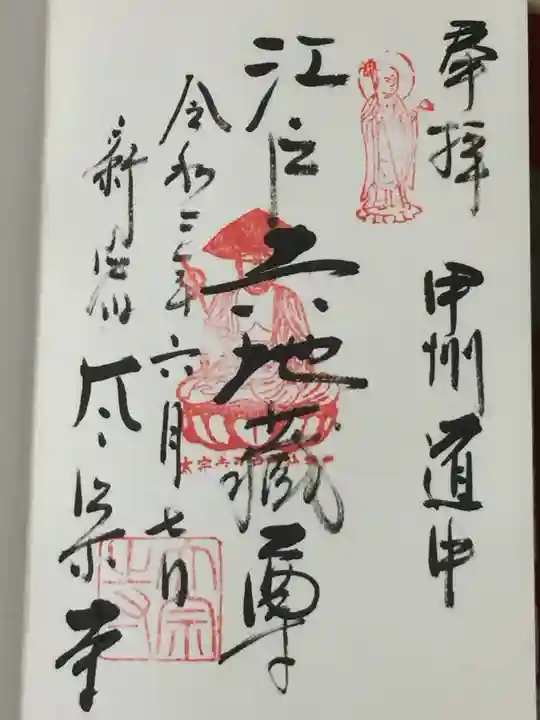 奉拝 甲州道中
江戸六地蔵尊
令和三年六月七日
新宿 太宗寺
太宗寺